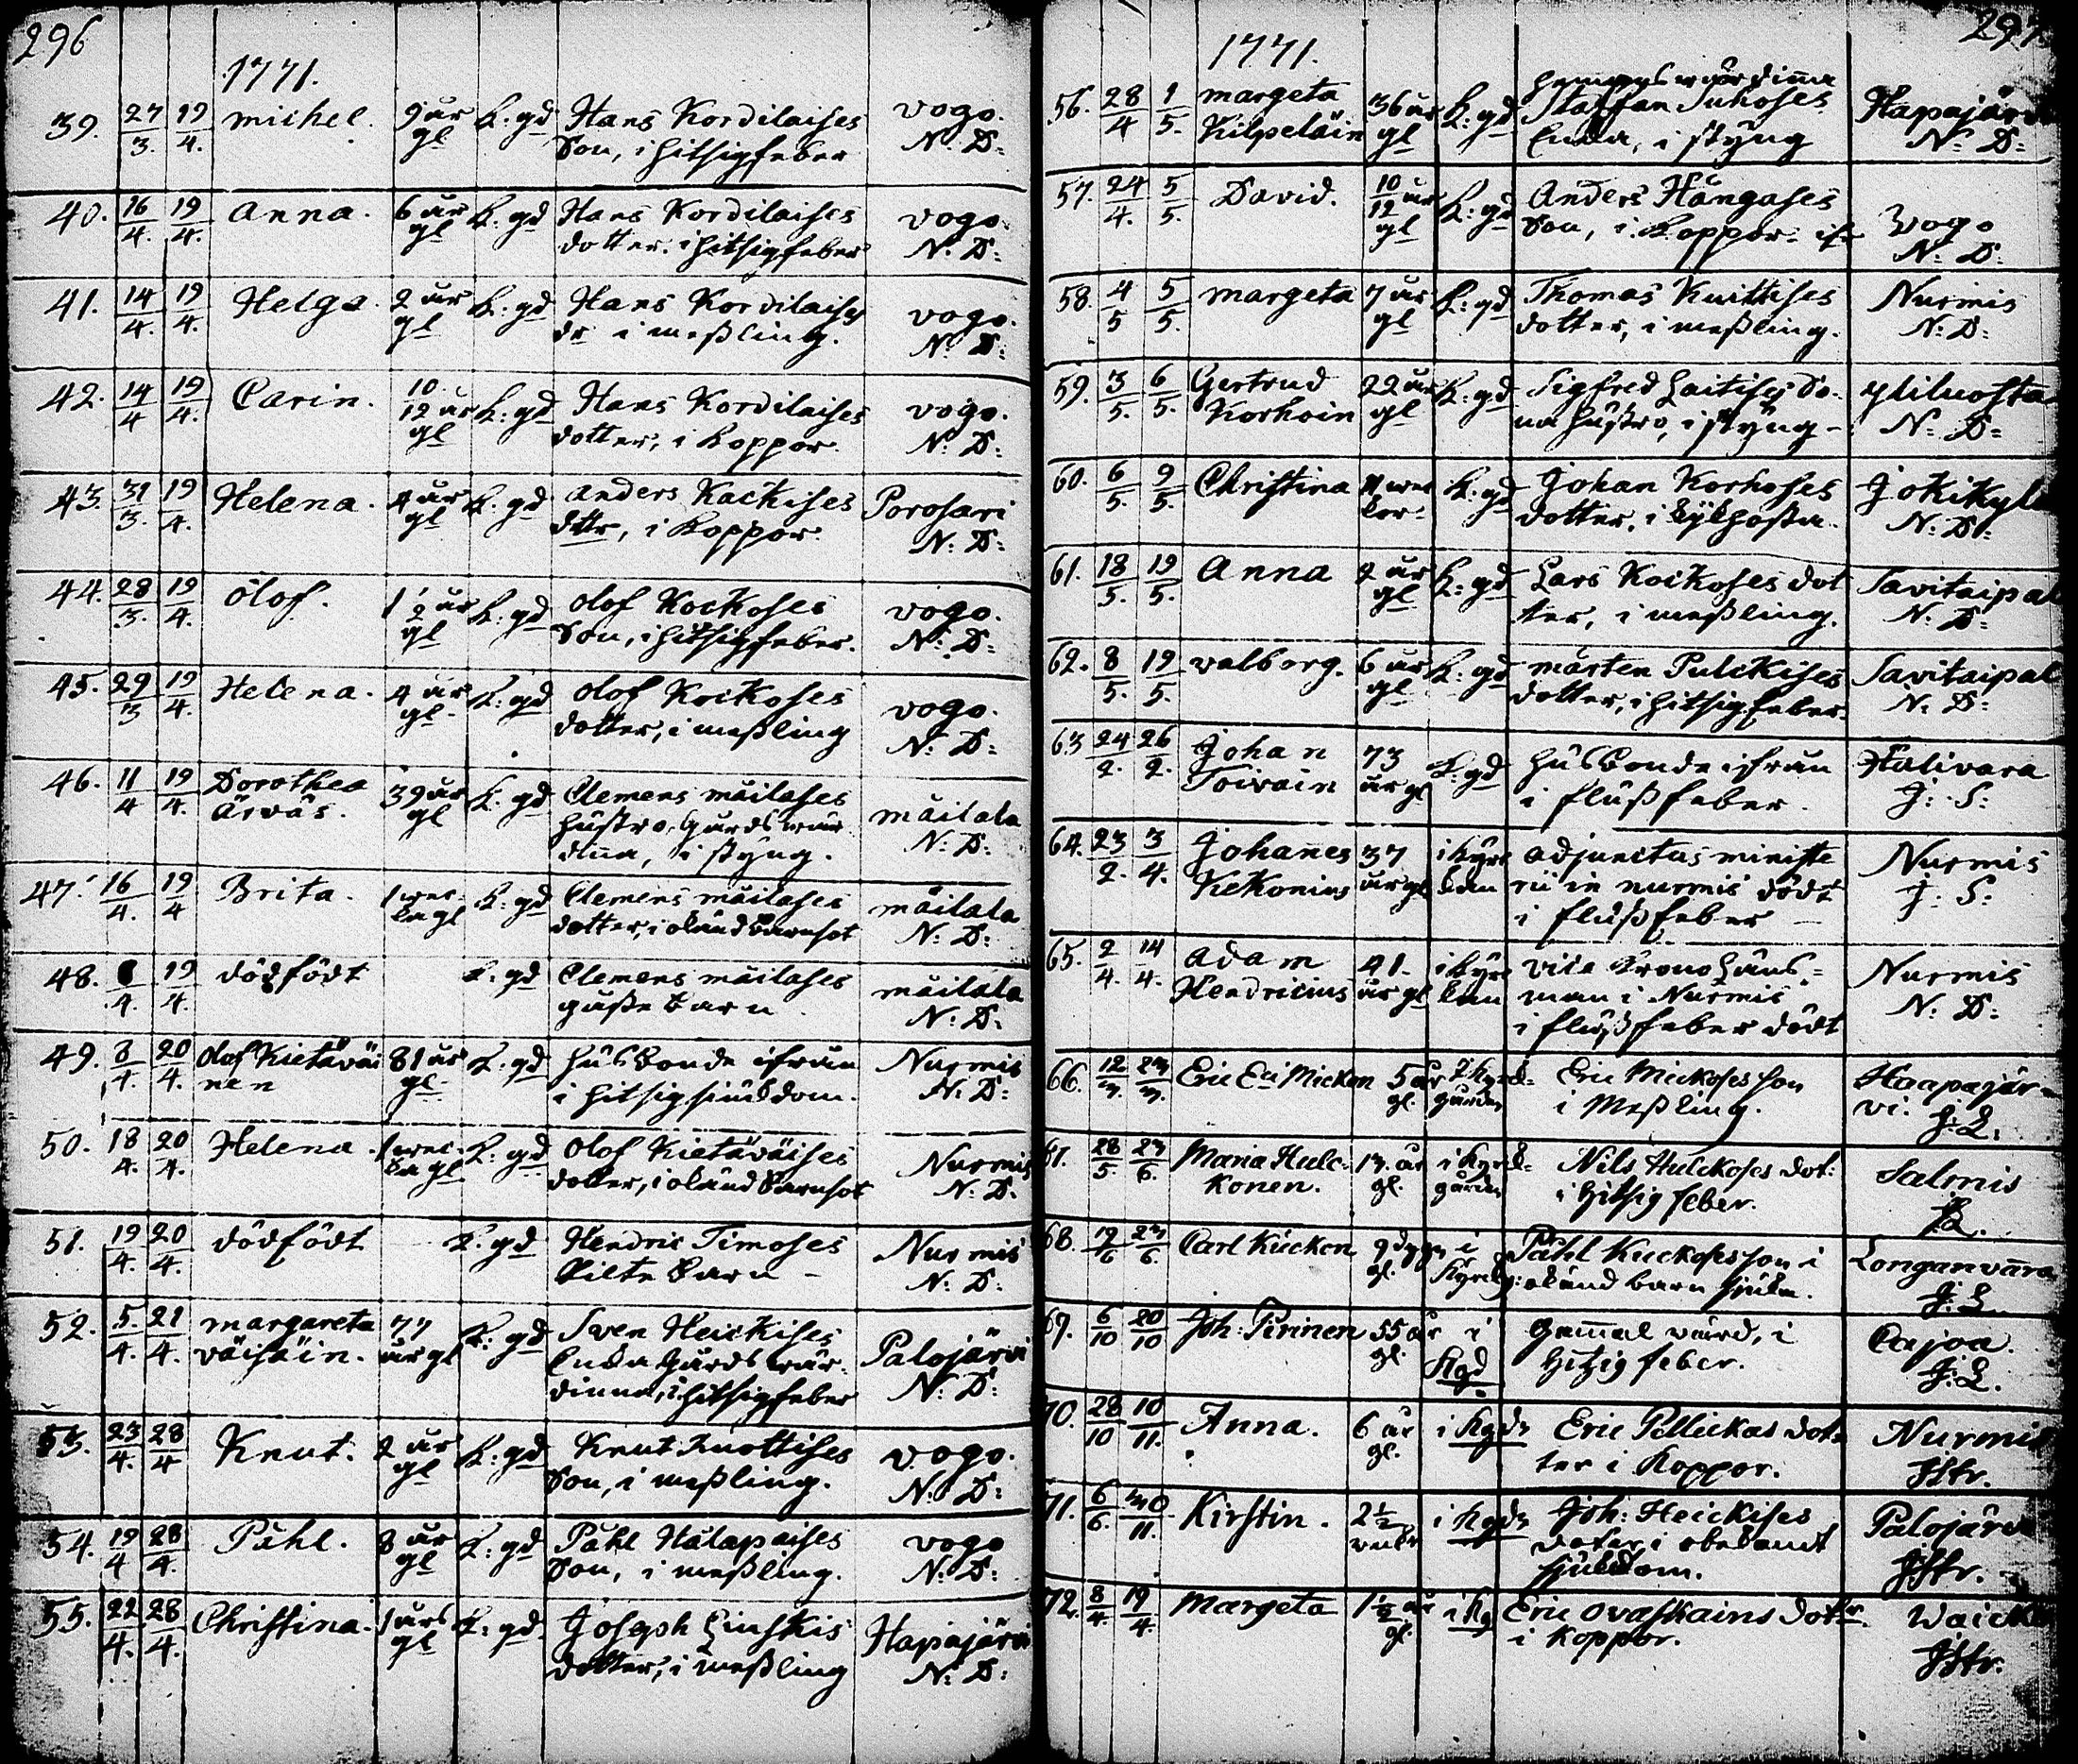 296
1771.
39. 27/3. 19/4. michel. 9 år gl k. gd Hans Kordilaises Son, i hitsigfeber vogo. N: D:
40. 16/4. 19/4. Anna. 6 år gl k. gd Hans Kordilaises dotter. i hitsigfeber vogo. N: D:
41. 14/4. 19/4. Helga. 2 år gl k. gd Hans Kordilaises dr i meßling. vogo. N: D:
42. 14/4 19/4. Carin. 10/12 år gl k. gd Hans Kordilaises dotter, i koppor. vogo. N: D:
43. 31/3. 19/4. Helena. 4 år gl k. gd Anders Kaickises dttr, i koppor. Porosari N: D:
44. 28/3. 19/4. Olof. 1 1/2 år gl k. gd Olof Kockoses Son, i hitsigfeber. vogo. N: D:
45. 29/3 19/4. Helena. 4 år gl k: gd Olof Kockoses dotter, i meßling vogo. N: D:
46. 11/4 19/4. Dorothea Ärväs. 39 år gl k. gd Clemens mäilases hustro, gårds vär dina, i styng. mäilala N: D:
47. 16/4. 19/4 Brita. 1 vec- ka gl k. gd Clemens mäilases dotter, i okänd barnsot mäilala N: D:
48. /4. 19/4. dödfödt k. gd Clemens mäilases gåsse barn mäilala N: D:
49. 8/4. 20/4. Olof Kietäväi nen 81 år gl k. gd husbonde ifrån i hitsig siukdom. Nurmis N: D:
50. 18/4. 20/4. Helena. 1 vec- ka gl k. gd Olof Kietäväises dotter, i okänd barnsot Nurmis N: D:
51. 19/4. 20/4. dödfödt k. gd Hendric Timoses Pilte barn Nurmis N: D:
52. 5./4. 21/4. margareta väisäin. 77 år gl k: gd Sven Heickises Enka gårds vär- dinna, i hitsigfeber Palojärvi N: D:
53. 23/4. 28/4 Knut. 2 år gl k: gd Knut Knottises Son, i meßling. vogo. N: D:
54. 19/4 28/4. Påhl. 8 år gl k. gd Påhl Hälapaises Son, i meßling. vogo N: D:
55. 22/4. 28/4. Christina. 1 års gl k. gd. Joseph Linskis dotter, i meßling Hapajärvi N: D:
297.
1771.
56. 28/4 1/5. margeta Kilpeläin 36 år gl k: gd värdinna Staffan Juhoses Enka, i styng Hapajärvi N: D:
57. 24/4. 5/5. David. 10/12 år gl k: gd Anders Hångases Son, i koppor. vogo N: D:
58. 4/5 5/5. margeta 7 år gl k: gd Thomas Kuittises dotter, i meßling. Nurmis N: D:
59. 3/5. 6/5. Gertrud Korhoin 22 år gl k: gd Sigfred Laitises So- na hustro, i styng Yliluosta N: D:
60. 6/5. 9/5. Christina 11 vec kor k. gd Johan Korhoses dotter, i kikhosta Jokikylä N: D:
61. 18/5. 19/5. Anna 2 år gl k: gd Lars Kockoses dot ter, i meßling. Savitaipal N: D:
62. 8/5. 19/5. valborg. 6 år gl k. gd mårten Pulckises dotter, i hitsigfeber. Savitaipal N: D:
63. 24/2. 26/2. Johan Toivain 73 år gl k: gd husbonde ifrån i flußfeber. Halivara J: S:
64. 23/2. 3/4. Johanes Kekonius 37 år gl i kyrc kan adjunctus ministe rii in nurmis dödt i flußfeber Nurmis J: S:
65. 2/4. 14/4. Adam Hendricius 41 år gl i kyrc kan vice Crono Läns- man i Nurmis i flußfeber dödt Nurmis N: D:
66. 12/3. 23/3. Eric Mickon 5 år gl. i kyrck- gården Eric Mickoses son i Meßling. Haapajär- vi. J: L.
67. 28/5. 23/6. Maria Hulc- konen. 13. år gl. i kyrck- gården Nils Hulckoses dot: i hitsig feber. Salmis
68. 12/6 23/6. Carl Kücken 9 dygn gl. i Kyrckg: Påhl Kuckoses son i okänd barn siukd. Longanvara J: L
69. 6/10 20/10 Joh: Pirinen 55 år gl. i Kgd Gammal värd, i hitzig feber. Cajoa. J: L.
70. 28/10 10/11. Anna. 6 år gl. i Kgdn Eric Pellickas dot- ter i koppor. Nurmis JStr.
71. 6/6. 30/11. Kirstin. 2 1/2 vekr i Kgdn Joh: Heickises doter i obekandt siukdom. Palojärvi JStr.
72. 8/4. 19/4. margeta 1 1/2 år gl. i Kg Eric Ovaskains dottr. i koppor. JStr.